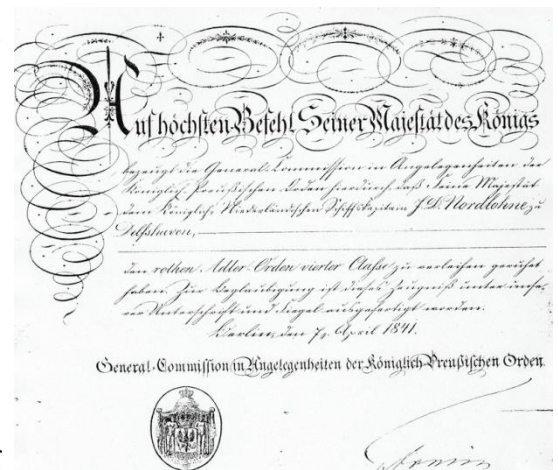 Auf höchsten Befehl Seiner Majestät des Königs
bezeugt die General-Commission in Angelegenheiten der
Königlich Preußischen Orden hierdurch, daß Seine Majestät
dem Königlich Niederländischen Schiffskapitein J. D. Nordlohne zu
Delfshaven,
den rothen Adler-Orden vierter Classe zu verleihen geruhet
haben. Zur Beglaubigung ist dieses Zeugniß unter unse-
rer Unterschrift und Siegel ausgefertigt worden.
Berlin, den 7n April 1841.
General-Commission in Angelegenheiten der Königlich Preußischen Orden.